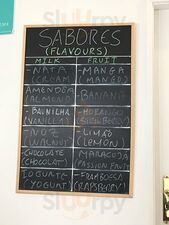 SABORES
(FLAVOURS)
MILK FRUIT
-NATA -MANGA
(CREAM) (MANGO)
AMENDOA -BANANA
(ALMOND)
-BAUNILHA -MORANGO
(VANILLA)
-NOZ -LIMÃO
WALNUT (LEMON)
-CHOCOLATE -MARACUJA
(CHOCOLAT) (PASSION FRUIT
IOGURTE- -FRAMBOESA
YOGURT) (RASPBERRY)
sluurpy